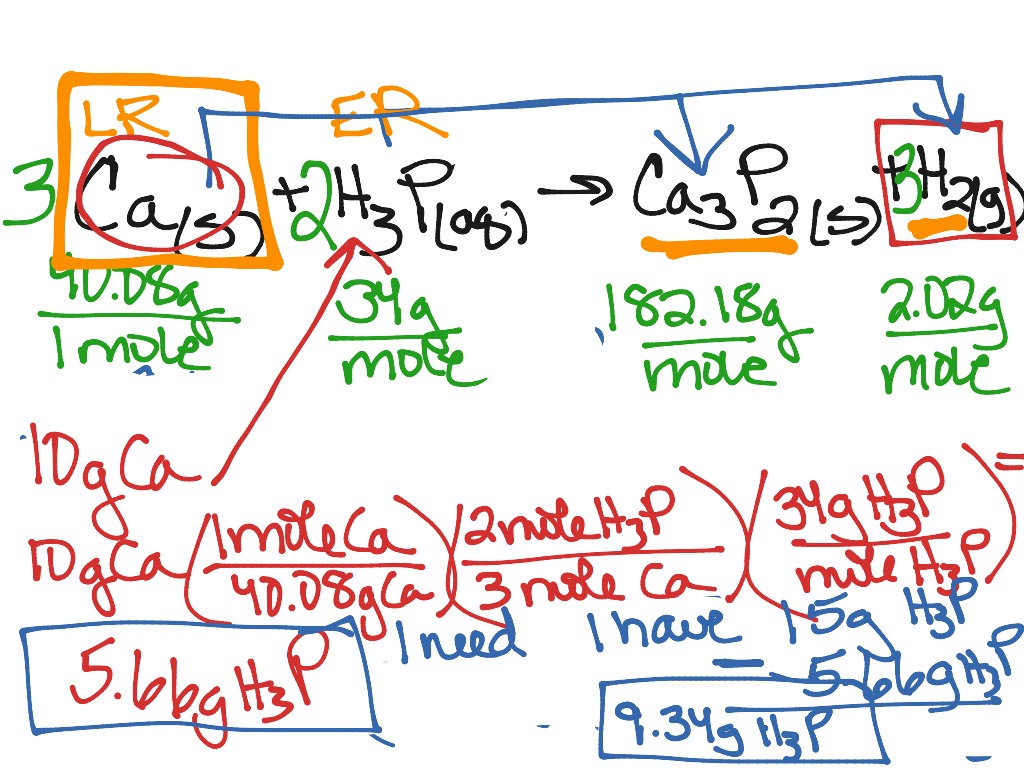 LR ER
3 Ca(s) + 2H₃P(aq) → Ca₃P₂(s) + 3H₂(g)
40.08g 34g 182.18g 2.02g
1 mole mole mole mole
10g Ca
10g Ca (1 mole Ca / 40.08g Ca) (2 mole H₃P / 3 mole Ca) (34g H₃P / mole H₃P) =
5.66g H₃P I need I have 15g H₃P
− 5.66g H₃P
9.34g H₃P